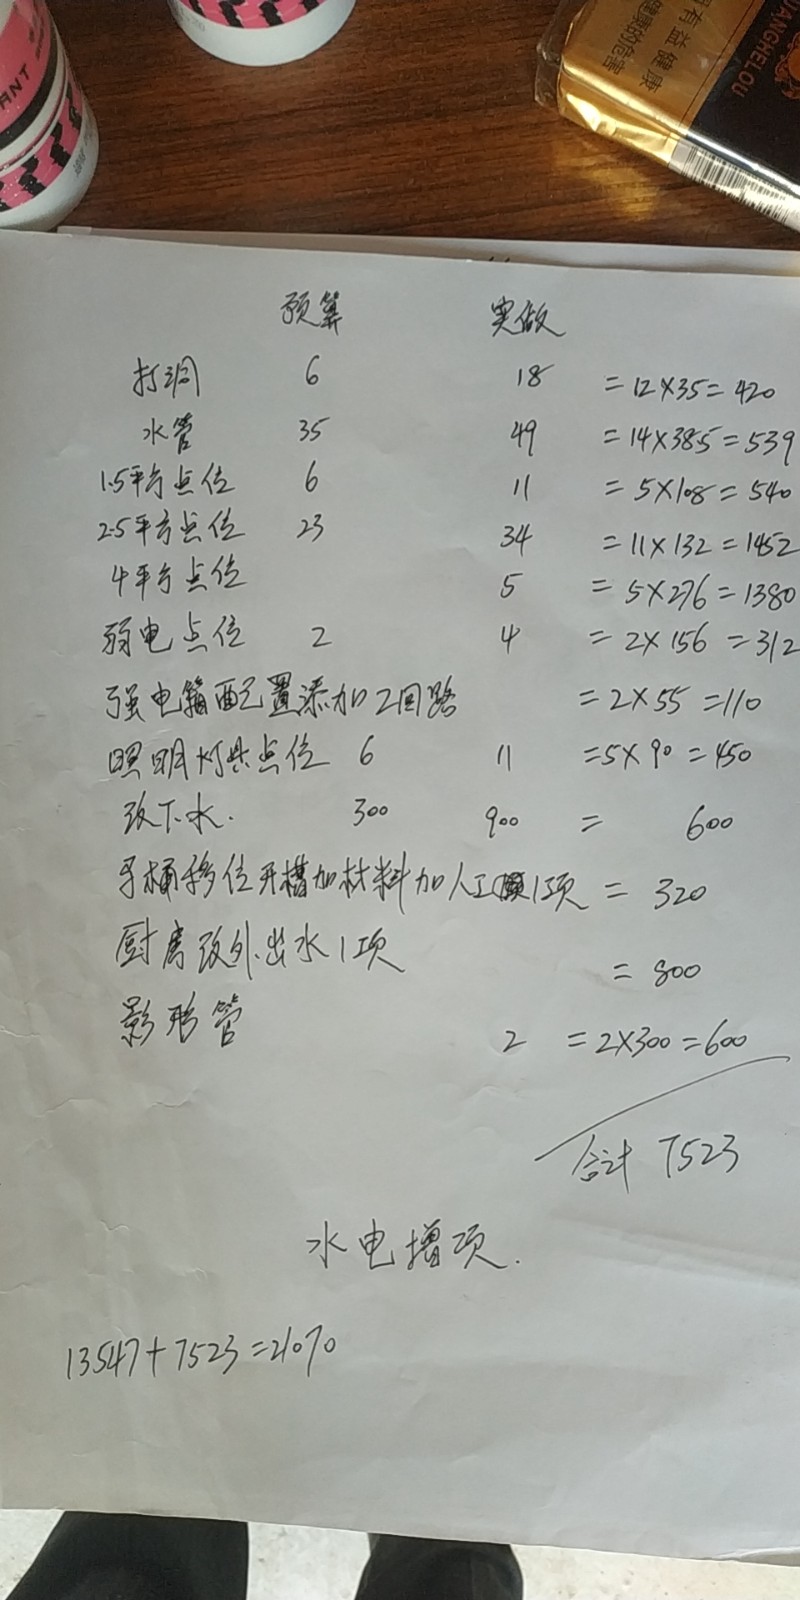 ANT
有益健康
健康的危害
UANGHELOU
预算 实做
打洞 6 18 =12×35=420
水管 35 49 =14×38.5=539
1.5平方点位 6 11 =5×108=540
2.5平方点位 23 34 =11×132=1452
4平方点位 5 =5×276=1380
弱电点位 2 4 =2×156=312
强电箱配置添加2回路 =2×55=110
照明灯具点位 6 11 =5×90=450
改下水. 300 900 = 600
马桶移位开槽加材料加人工 1项 = 320
厨房改外出水1项 =800
影形管 2 =2×300=600
合计 7523
水电增项.
13547+7523=21070